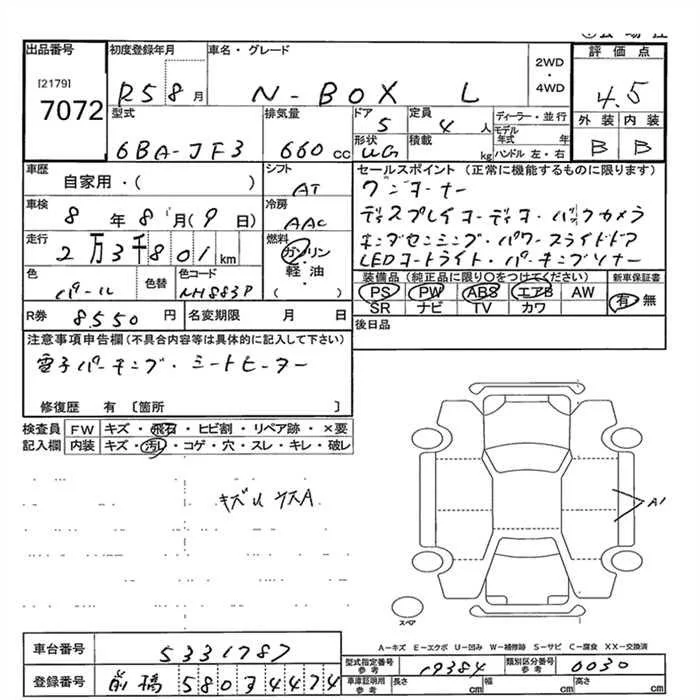 出品番号 初度登録年月 車名・グレード 2WD・4WD 評価点
[2179] 7072 R5 8月 N-BOX L 4.5
型式 排気量 ドア 定員 ディーラー・並行 外装 内装
6BA-JF3 660cc 5 4人 モデル年式 年 B B
形状 積載 kg ハンドル 左・右
UG
車歴 シフト セールスポイント (正常に機能するものに限ります)
自家用・( ) AT ワンオーナー
車検 8年8月(9日) 冷房 AAC ディスプレイオーディオ・バックカメラ
走行 2万3千801km 燃料 ガソリン・軽油・( ) ホンダセンシング・パワースライドドア
LEDヘッドライト・パーキングソナー
色 色替 色コード 装備品(純正品に限り○をつけてください) 新車保証書
パール NH883P PS PW ABS エアB AW 有 無
SR ナビ TV カワ
R券 8550円 名変期限 月 日 後日品
注意事項申告欄(不具合内容等は具体的に記入して下さい)
電子パーキング・シートヒーター
修復歴 有 〔箇所 〕
検査員 FW キズ・飛石・ヒビ割・リペア跡・×要
記入欄 内装 キズ・汚れ・コゲ・穴・スレ・キレ・破レ
A1
スペア
A-キズ E-エクボ U-凹み W-補修跡 S-サビ C-腐食 XX-交換済
車台番号 5331787 型式指定番号 参考 19384 類別区分番号 参考 0030
登録番号 前橋 580 3 4474 車庫証明資料 参考 長さ cm 幅 cm 高さ cm